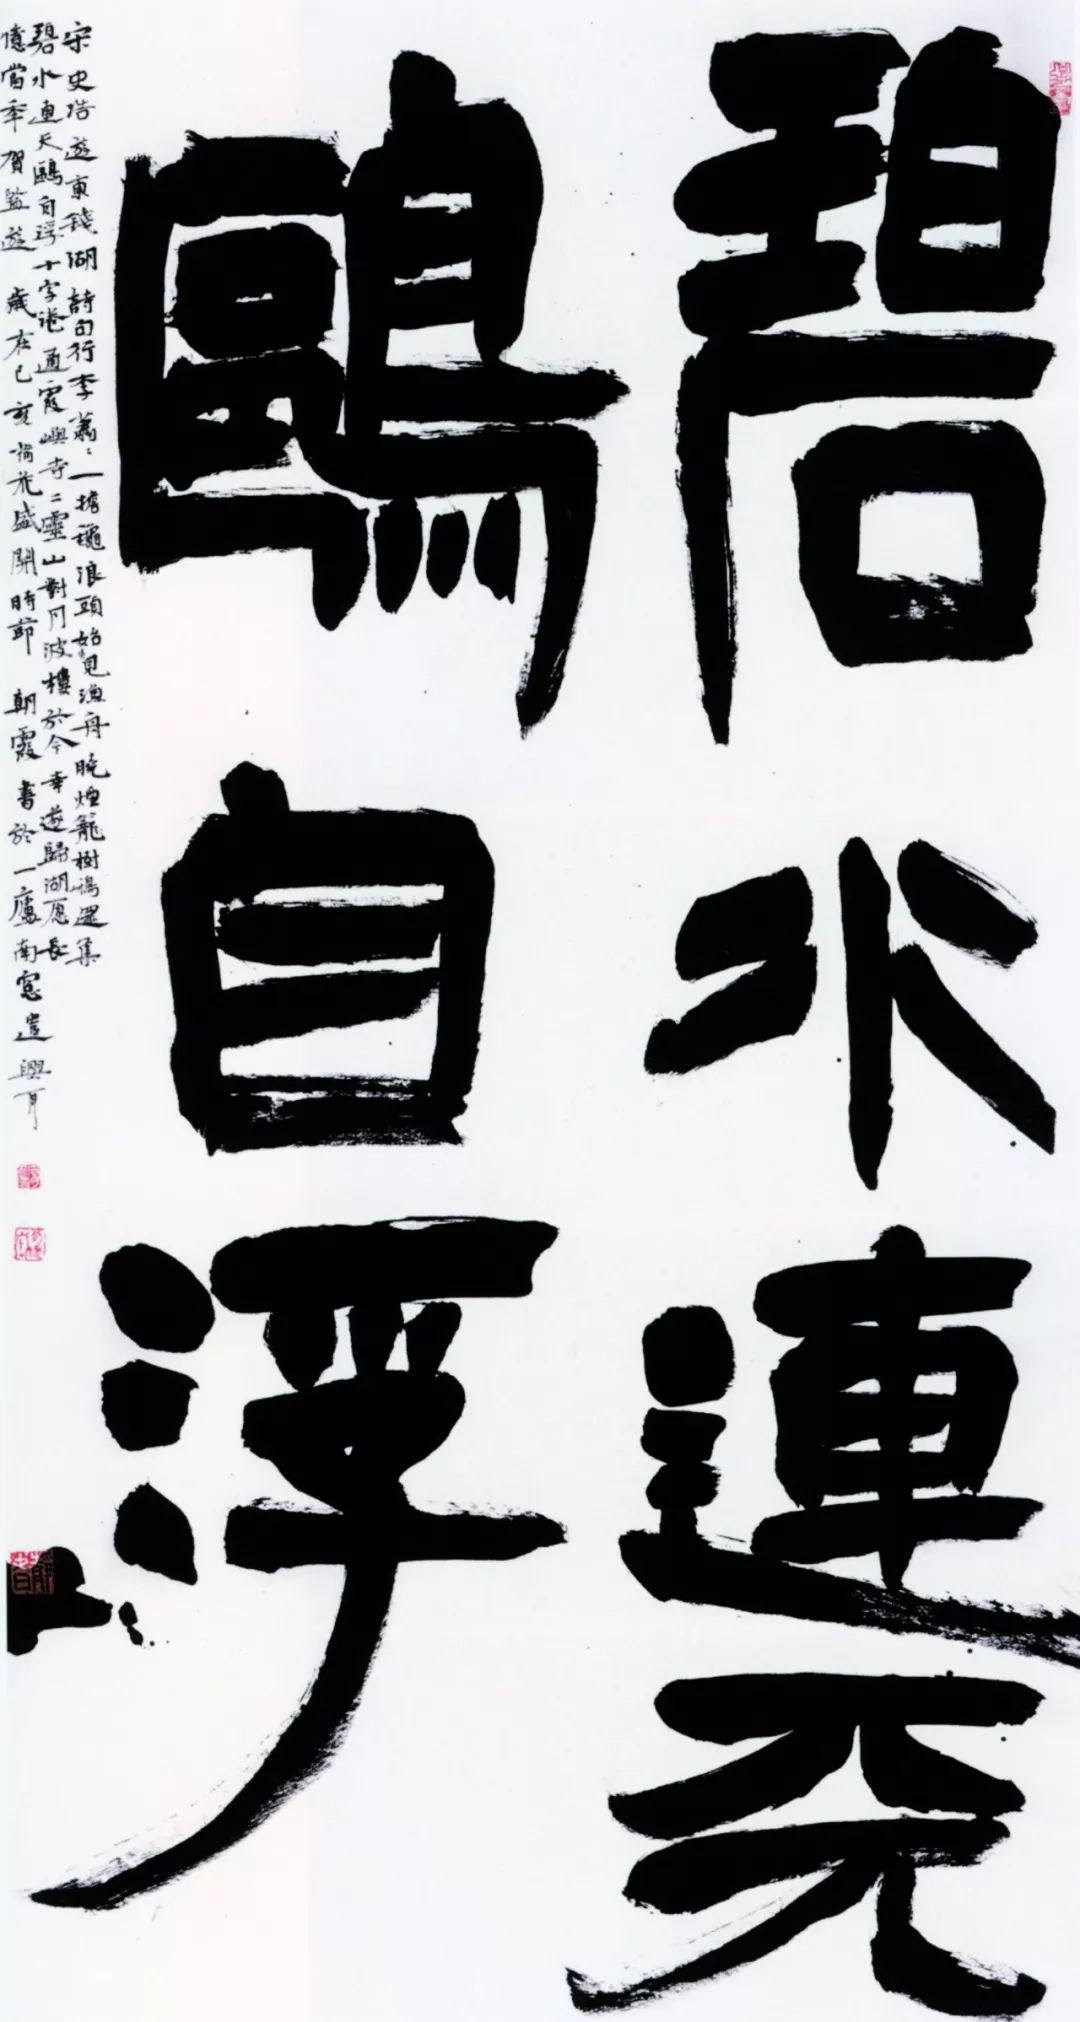 碧水連天
鷗自浮
宋史浩遊東錢湖詩句行李蕭〻一擔穐浪頭始見漁舟晚煙籠樹鴉還集
碧水連天鷗自浮十字港通霞嶼寺二靈山對月波樓於今幸遂歸湖願長
憶當年賀監遊 歲在己亥梅花盛開時節 朝霞書於一廬南窻遣興耳